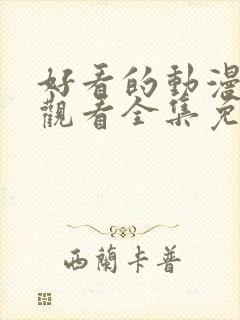 好看的動漫
觀看全集免
西蘭卡普